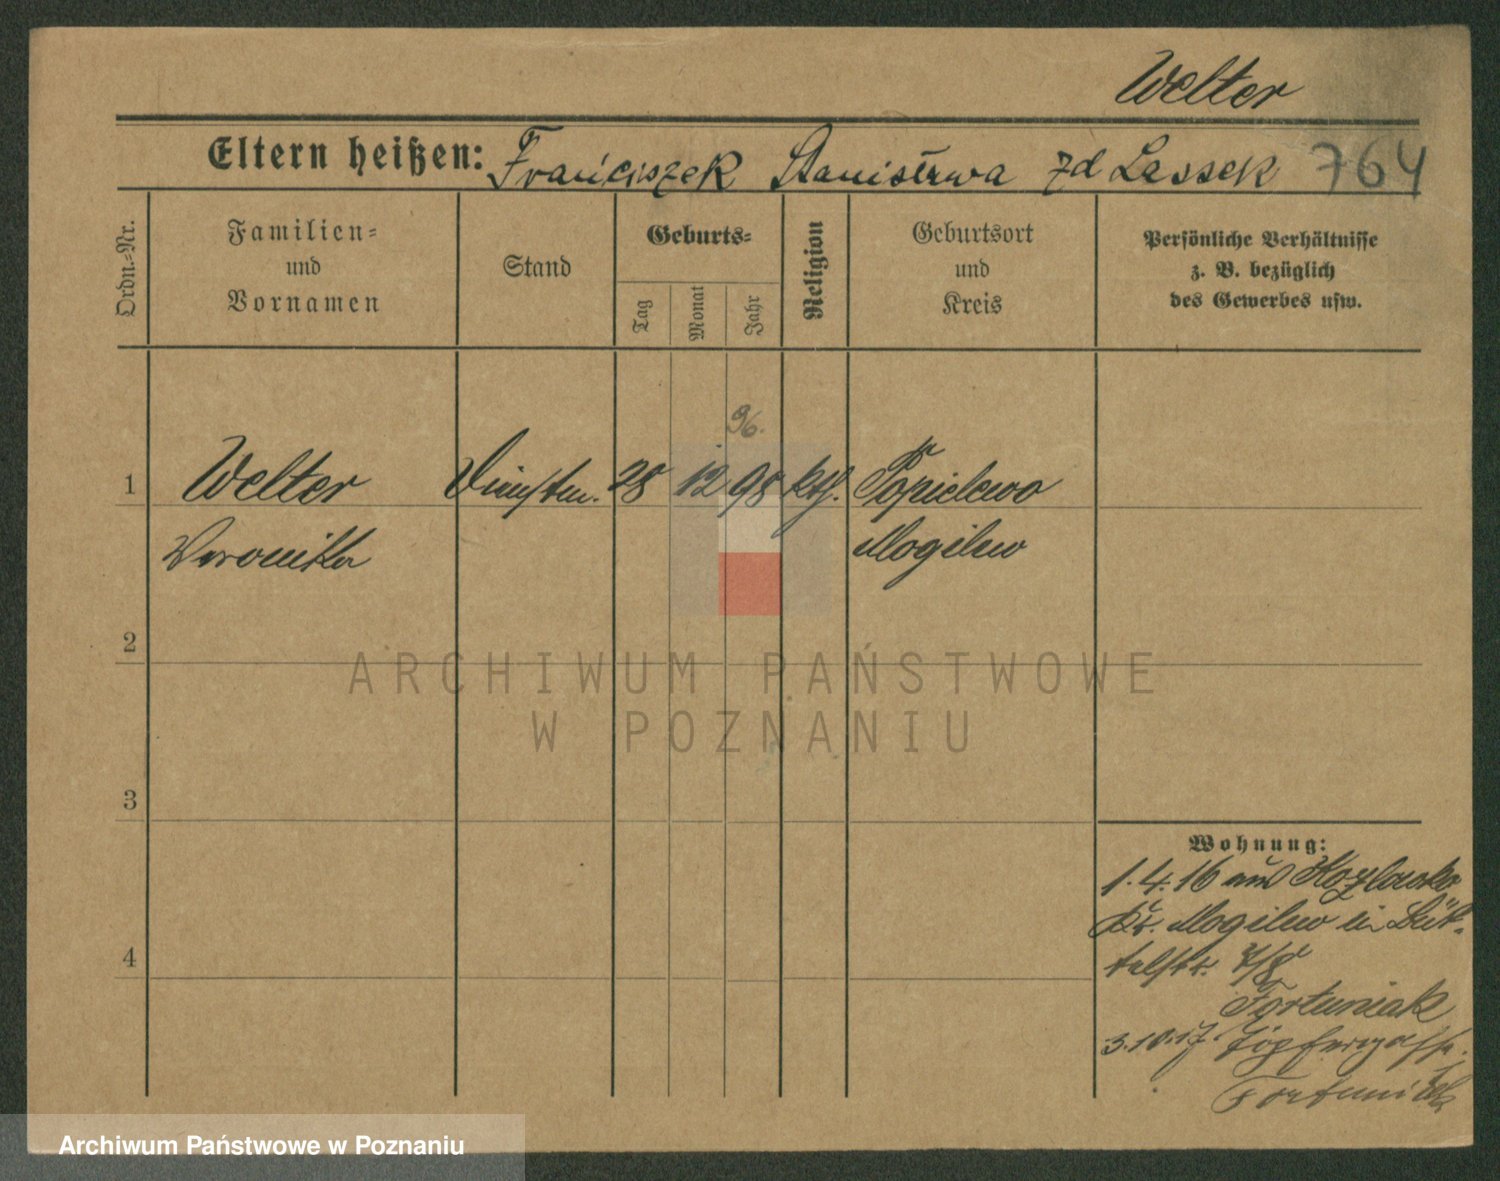 Welter
Eltern heißen: Franciszek Stanisława zd Lassek 764
Ordn.-Nr.
Familien-
und
Vornamen
Stand
Geburts-
Tag
Monat
Jahr
Religion
Geburtsort
und
Kreis
Persönliche Verhältnisse
z. B. bezüglich
des Gewerbes usw.
96.
1 Welter Dienstm. 28 12 98 kth. Popielewo
Veronika Mogilno
2
3
4
Wohnung:
1.4.16 aus Kozlowko
Kr. Mogilno in Büt-
telstr. 7/8
Fortuniak
3.10.17 Töpfergasse
Fortuniak
ARCHIWUM PAŃSTWOWE
W POZNANIU
Archiwum Państwowe w Poznaniu